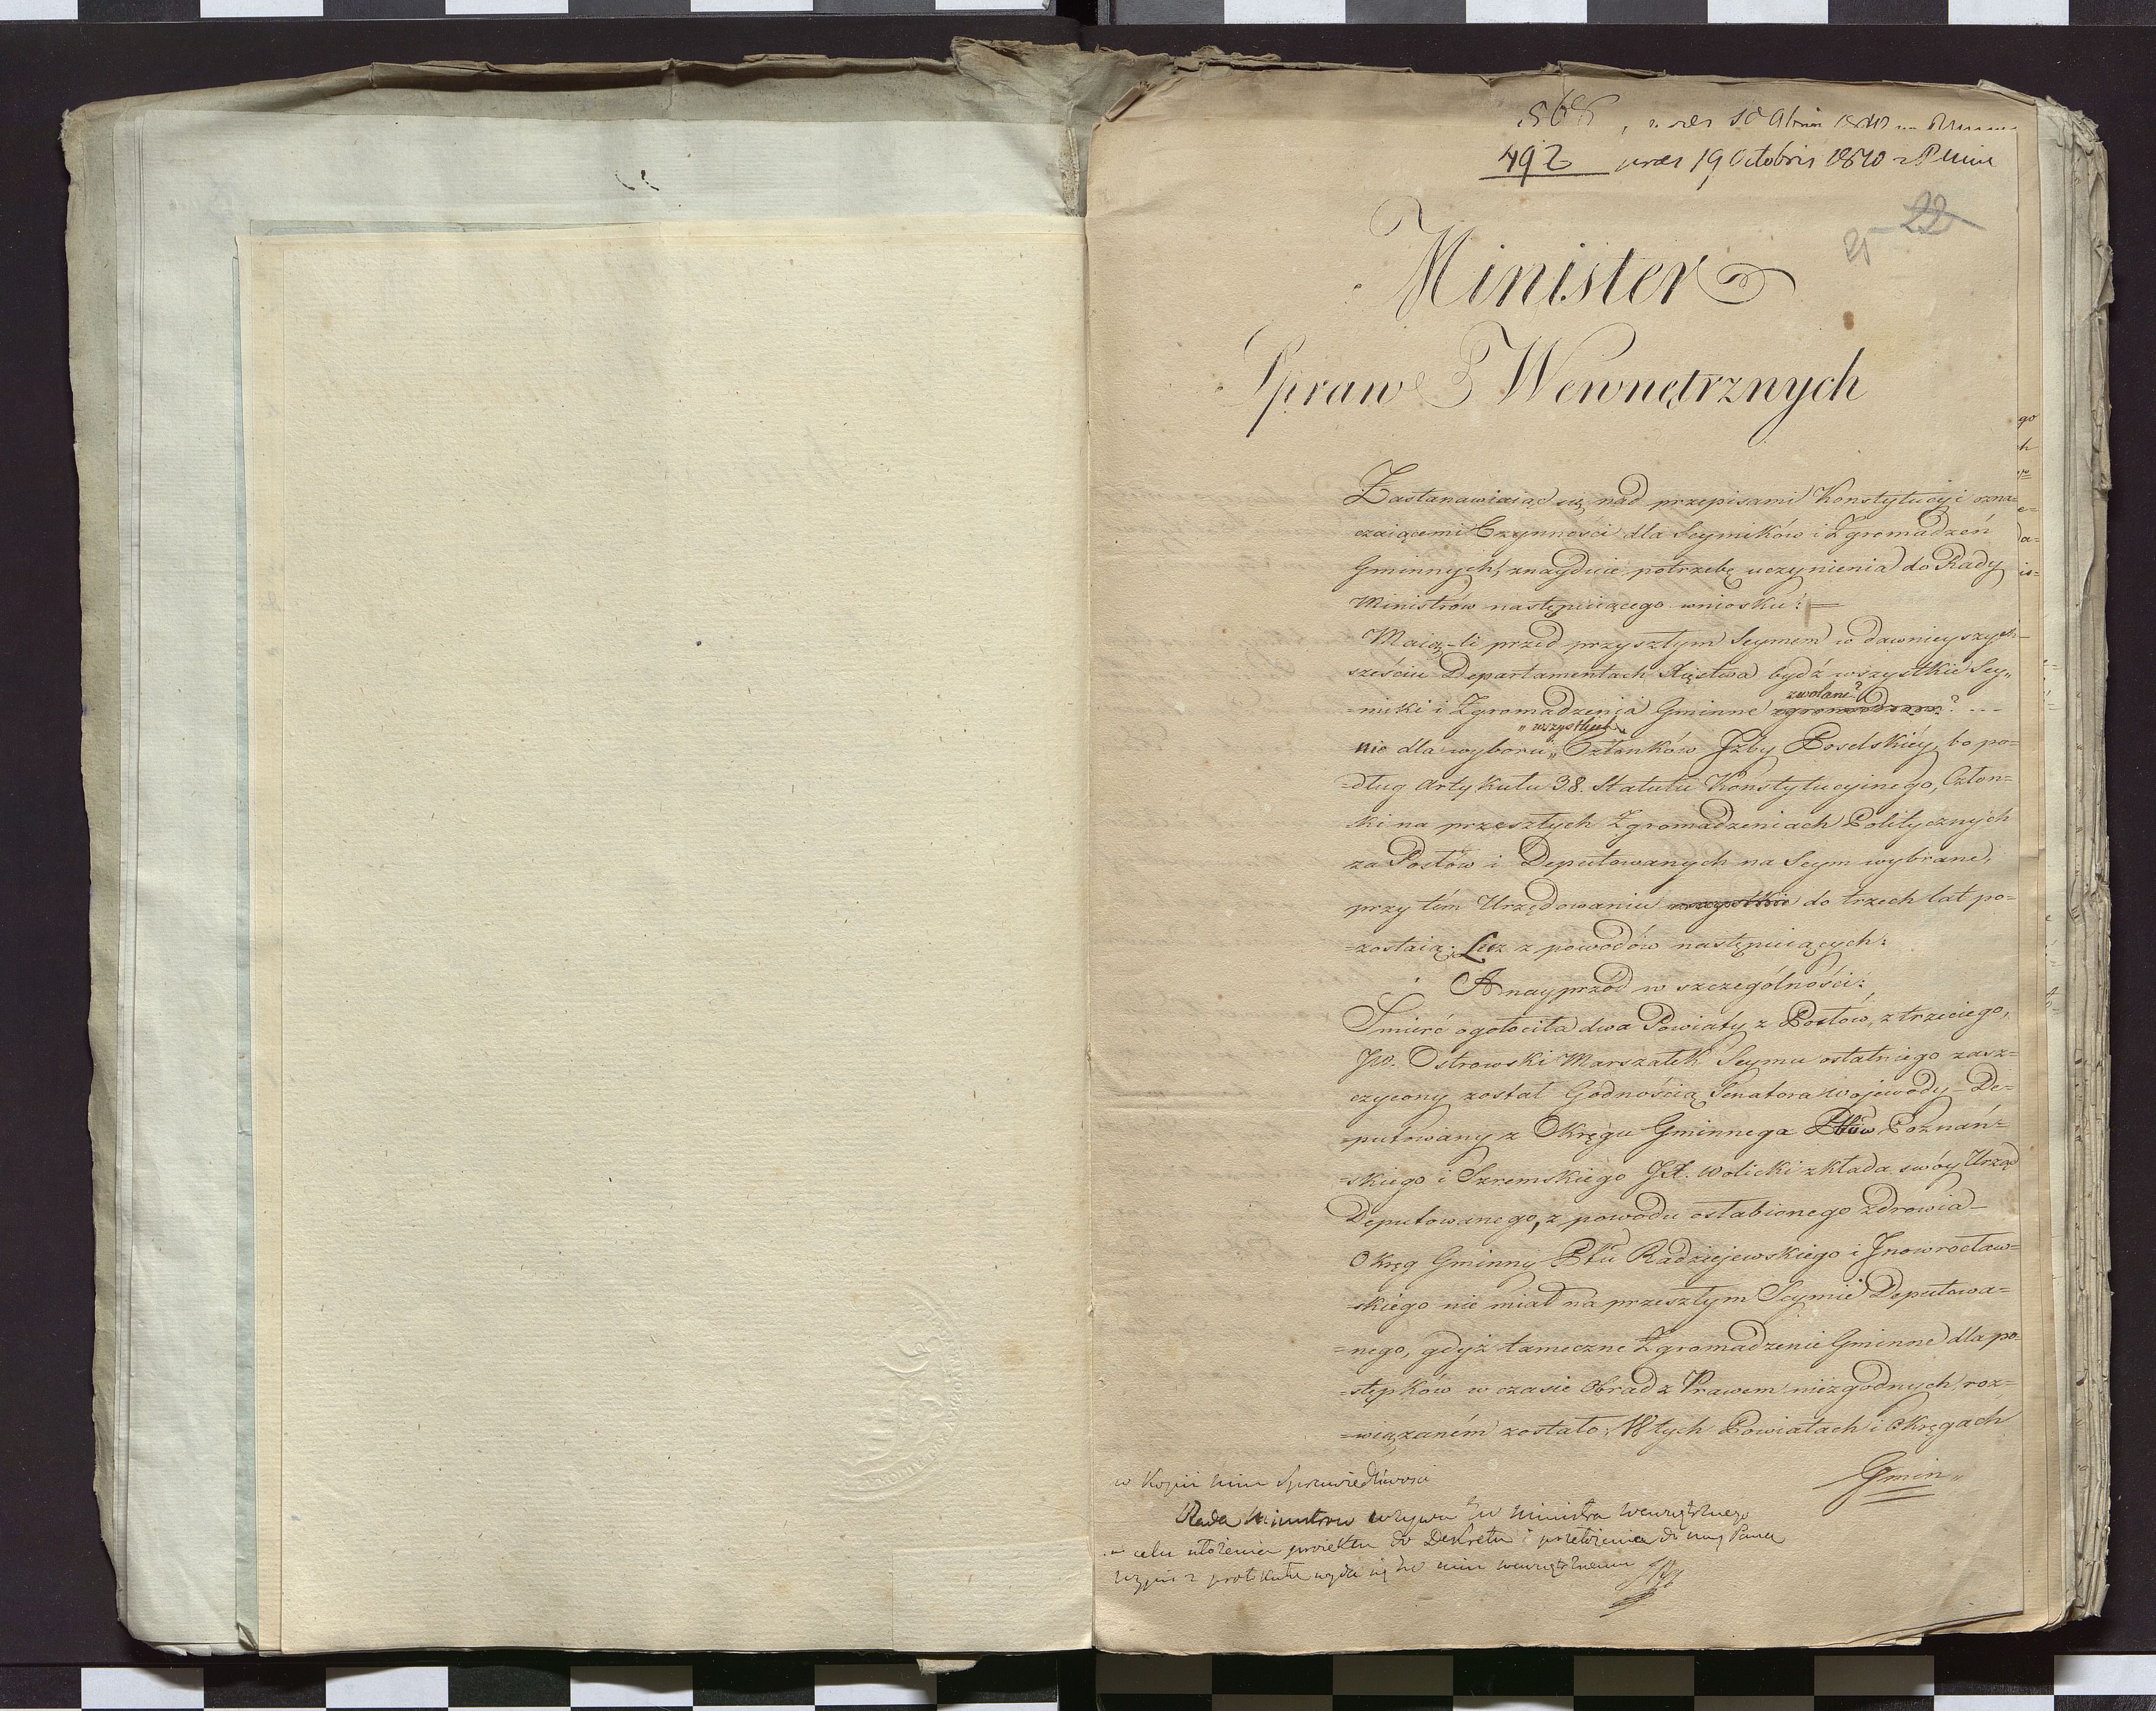 492 praes 19 Octobris 1810
22
25
Minister
Spraw Wewnętrznych
Zastanawiaiąc się nad przepisami Konstytucyi ozna=
czaiącemi Czynności dla Seymików i Zgromadzeń
Gminnych, znayduie potrzebę uczynienia do Rady
Ministrów następuiącego wniosku: =
Maią-li przed przyszłym Seymem w dawnieyszych
sześciu Departamentach Xięstwa bydź wszystkie Sey„
zwołane?
=miki i Zgromadzenia Gminne zgromadzone? ...
„wszystkich
nie dla wyboru „ Członków Jzby Poselskiéy, bo po=
=dług artykułu 38. Statutu Konstytucyinego, Człon=
ki na przeszłych Zgromadzeniach Politycznych
za Posłów i Deputowanych na Seym wybrane,
przy tém Urzędowaniu wszystkie do trzech lat po=
=zostaią; Lecz z powodów następuiących:
A nayprzód w szczególności:
Smierć ogołociła dwa Powiaty z Posłów, z trzeciego,
JW. Ostrowski Marszałek Seymu ostatniego zasz=
czycony został Godnością Senatora Wojewody - De=
=putowany z Okręgu Gminnego Pttów Poznań=
=skiego i Szremskiego JX. Wolicki zkłada swóy Urząd
Deputowanego, z powodu osłabionego Zdrowia -
Okręg Gminny Pttu Radziejewskiego i Jnowrocław=
=skiego nie miał na przeszłym Seymie Deputowa=
=nego, gdyż tameczne Zgromadzenie Gminne dla po=
=stępków w czasie Obrad z Prawem niezgodnych, roz=
=wiązaném zostało; W tych Powiatach i Okręgach
Gmin„
w Kopii Sprawiedliwości
Rada Ministrow wzywa JW Ministra Wewnętrznego
w celu ułożenia proiektu do Dekretu i przełożenia do Pana